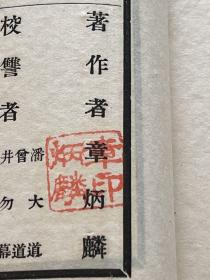 著作者章炳麟
校讎者
潘大道
曾道
井勿幕
章印
炳麟